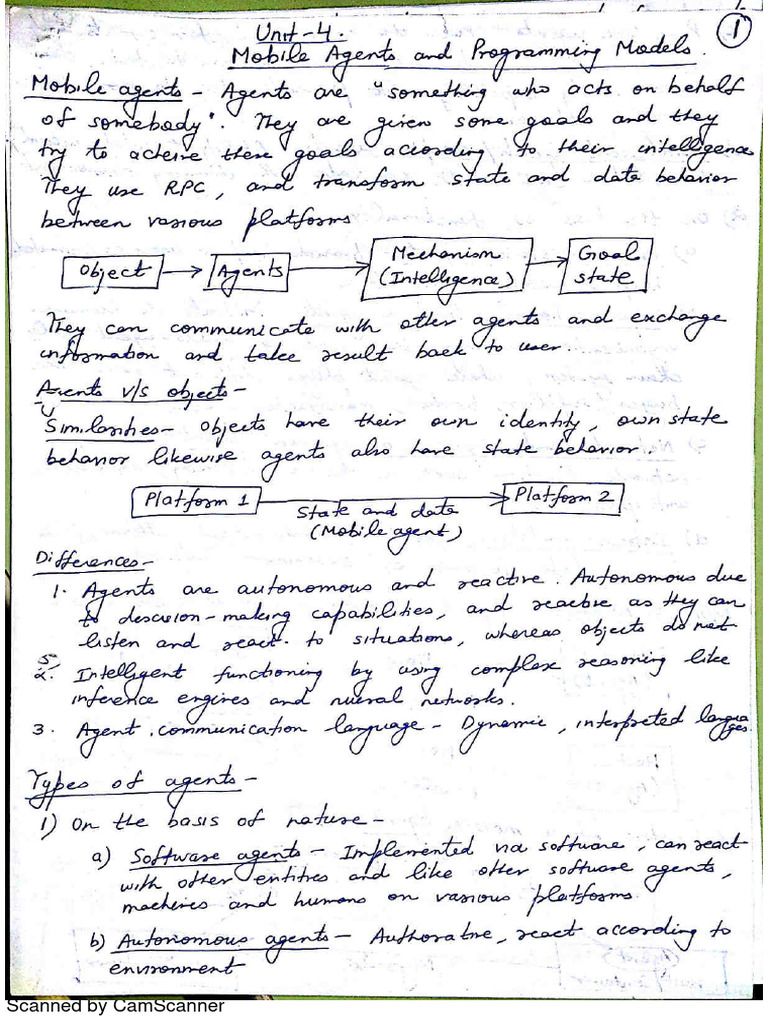 1
Unit-4.
Mobile Agents and Programming Models.
Mobile agents - Agents are "something who acts on behalf
of somebody". They are given some goals and they
try to acheive these goals according to their intelligence
They use RPC, and transform state and data behavior
between various platforms
Object Agents Mechanism (Intelligence) Goal state
They can communicate with other agents and exchange
information and take result back to user.
Agents v/s objects -
Similarities - objects have their own identity, own state
behavior likewise agents also have state behavior.
Platform 1 State and data (Mobile agent) Platform 2
Differences -
1. Agents are autonomous and reactive. Autonomous due
to descision-making capabilities, and reactive as they can
listen and react to situations, whereas objects do not
2. Intelligent functioning by using complex reasoning like
inference engines and nueral networks.
3. Agent communication language - Dynamic, interpreted languages
Types of agents -
1) On the basis of nature -
a) Software agents - Implemented via software, can react
with other entities and like other software agents,
machines and humans on various platforms.
b) Autonomous agents - Authorative, react according to
environment
Scanned by CamScanner